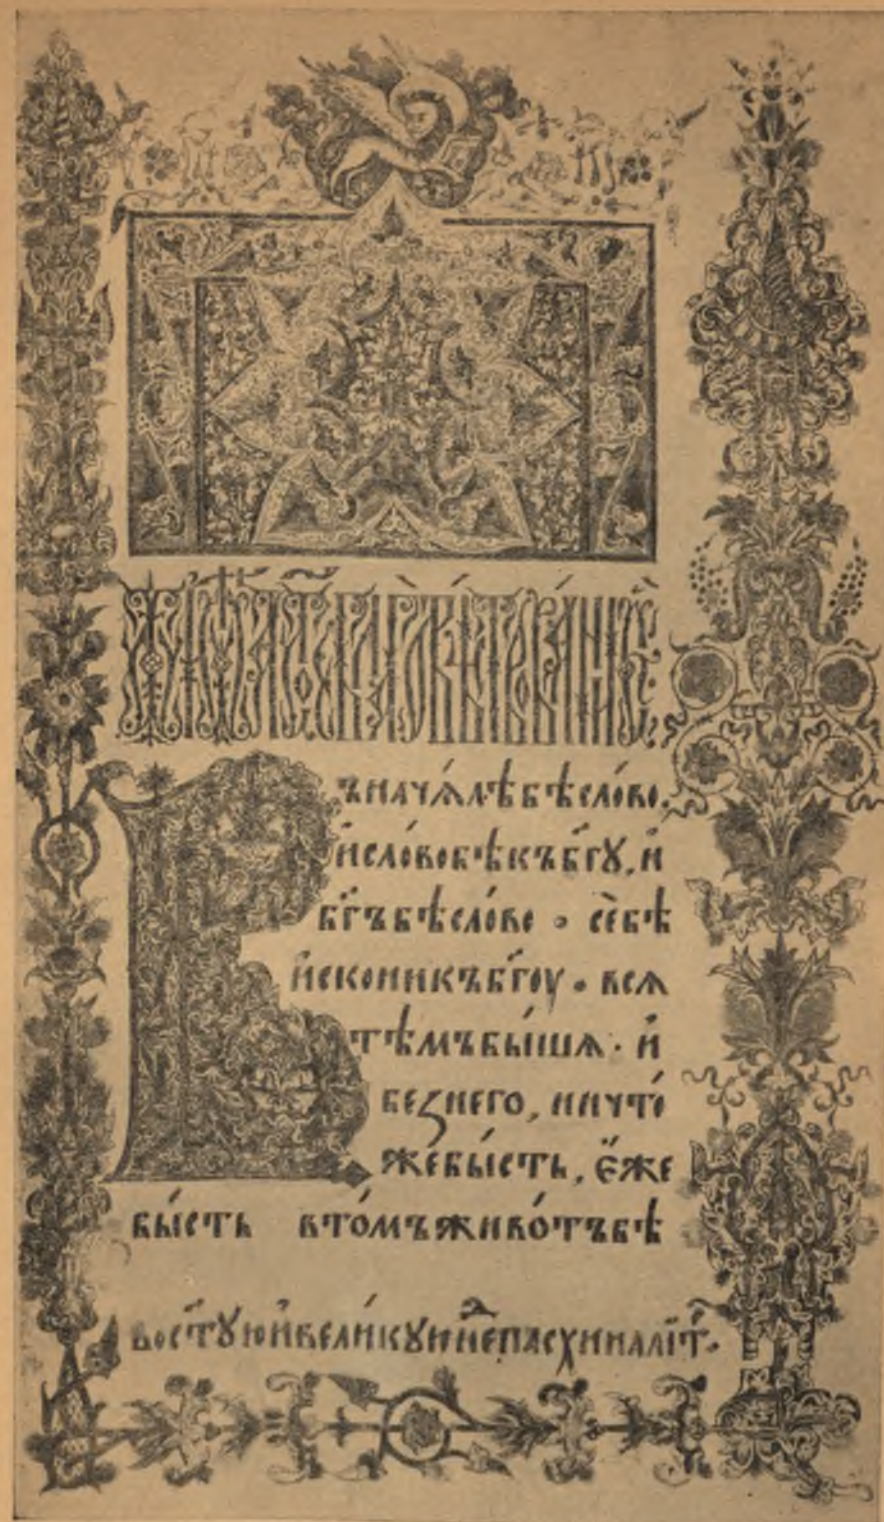 Въначѧ́лѣбѣсло́во.
и҆сло́вобѣкъбг҃ꙋ, и҆
бг҃ъбѣсло́во · се̏бѣ
и҆сконикъбг҃оу · всѧ
тѣмъбы́шѧ · и҆
беꙁнего, ничто́
жебы́сть, є҆́же
бы́сть вто́мъживо́тъбѣ
вост҃ꙋюи҆вели́кꙋю не҃пасхи налїт҃.